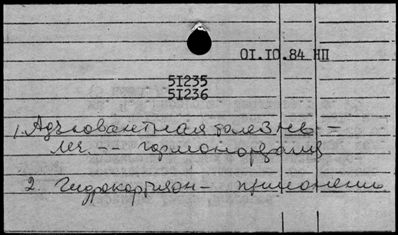 01.10.84 НП
51235
51236
1. Адъювантная болезнь –
леч. -- гормонотерапия
2. Гидрокортизон – применение